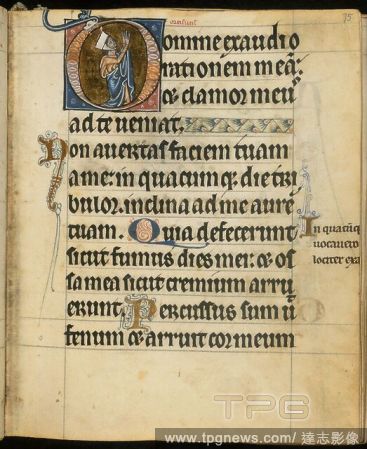 Domine exaudi o
rationem meā:
& clamor meuˢ
ad te ueniat.
Non auertas faciem tuam
a me: in quacumq; die tri
bulor. inclina ad me aurē
tuam. Quia defecerunt
sicut fumus dies mei: & os
sa mea sicut cremium arru
erunt. Percussus sum u
fenum & arruit cor meum
In quacūq
uocauero
lociter exa
TPG
www.tpgnews.com/達志影像